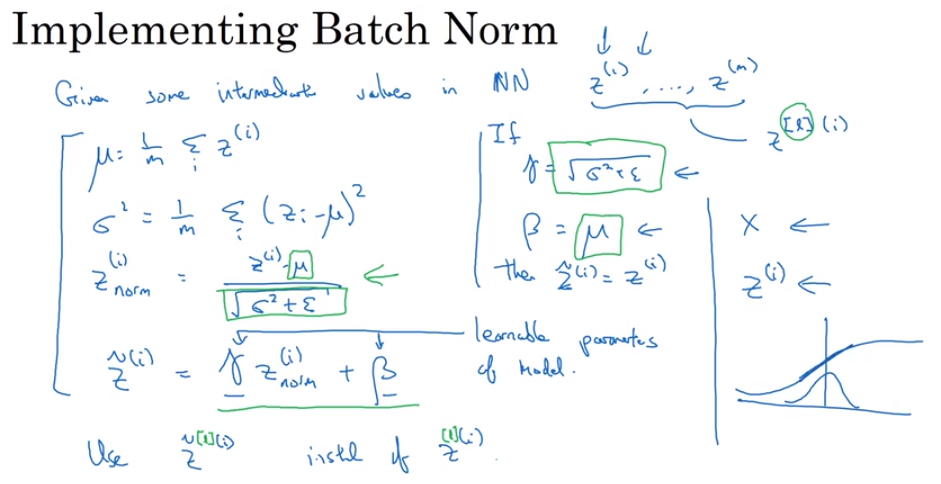 Implementing Batch Norm
Given some intermediate values in NN z^(i), ..., z^(m)
z^[l](i)
μ = 1/m Σ_i z^(i)
σ² = 1/m Σ_i (z_i - μ)²
z_norm^(i) = (z^(i) - μ) / √(σ² + ε) ←
z̃^(i) = γ z_norm^(i) + β
learnable parameters
of model.
If
γ = √(σ² + ε) ←
β = μ ←
then z̃^(i) = z^(i)
X ←
z^(i) ←
Use z̃^[l](i) instead of z^[l](i).